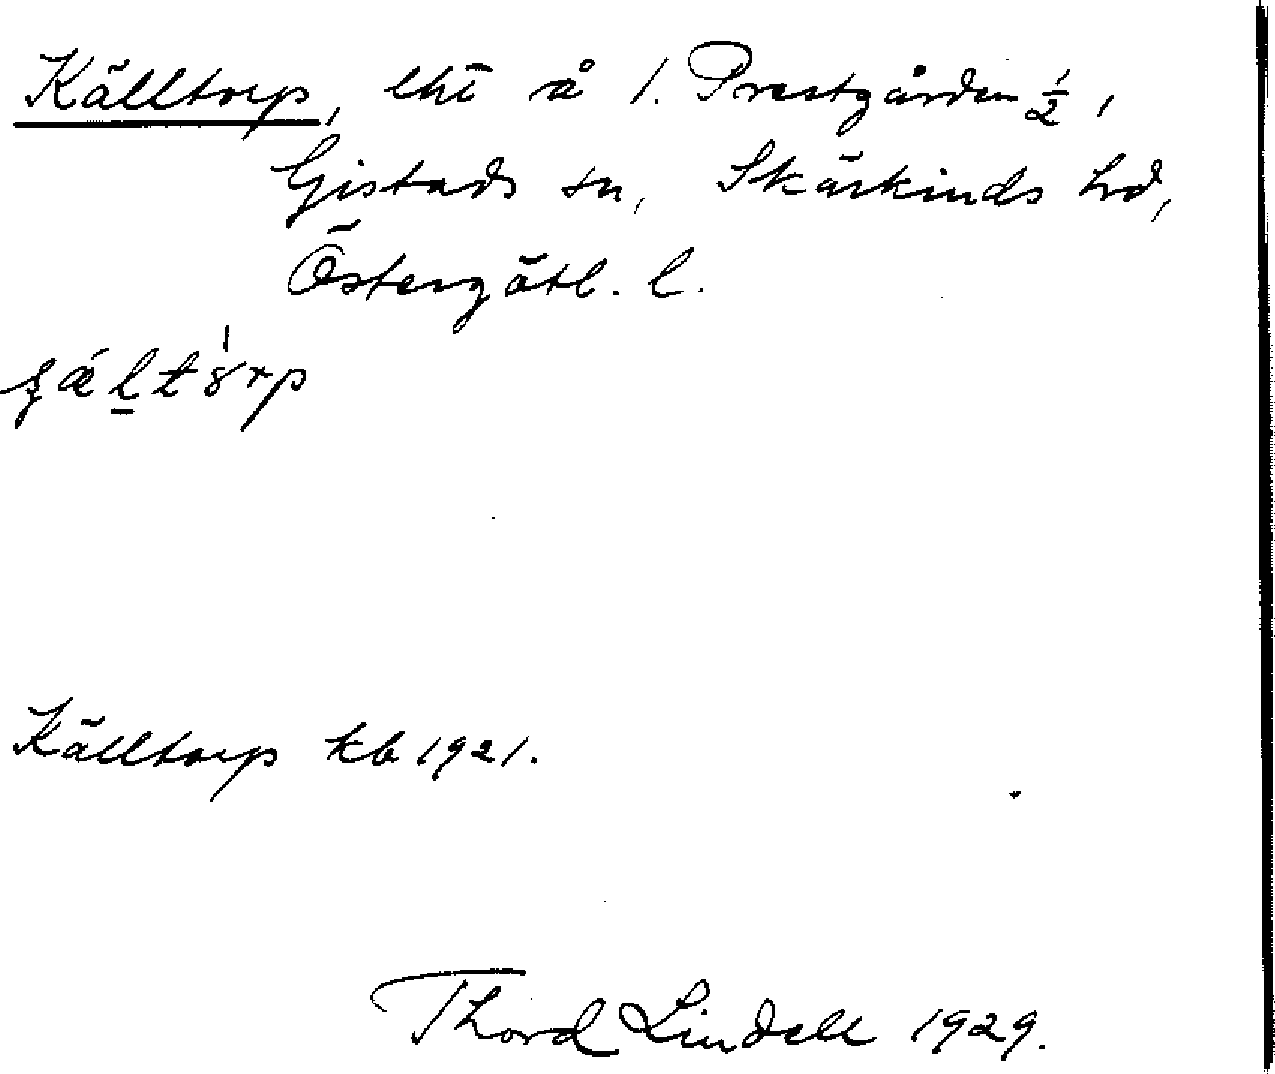 Källtorp, lht å 1. Prestgården ½,
Gistads sn, Skärkinds hd,
Östergötl. l.
Källtorp kb 1921.
Thord Lindell 1929.